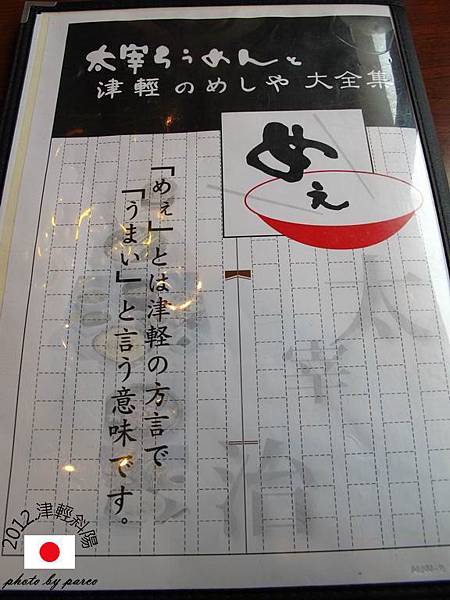 太宰らうめんと
津輕のめしや 大全集
めぇ
「めぇ」とは津軽の方言で
「うまい」と言う意味です。
太宰治
2012.津輕斜陽
photo by parco